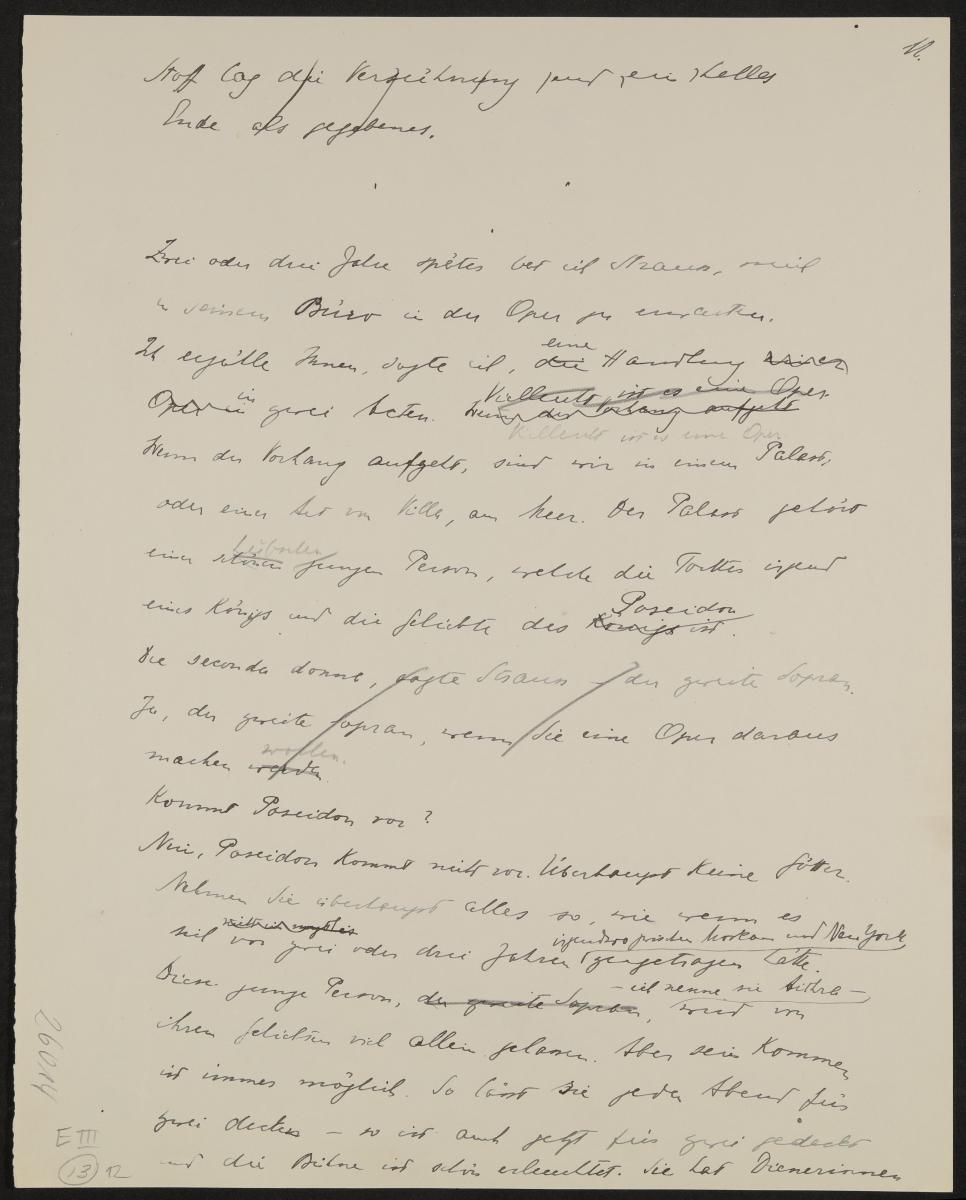 11.
Stoff lag die Verzeihung und ein helles
Ende als gegebenes.
Zwei oder drei Jahre später bat ich Strauss, mich
in seinem Büro in der Oper zu erwarten.
Ich erzähle Ihnen, sagte ich, die eine Handlung einer
Oper in in zwei Acten. Vielleicht ist es eine Oper.
Wenn der Vorhang aufgeht
Vielleicht ist es eine Oper.
Wenn der Vorhang aufgeht, sind wir in einem Palast,
oder einer Art von Villa, am Meer. Der Palast gehört
einer schönen jungen Person, welche die Tochter irgend
eines Königs und die Geliebte des Königs ist. Poseidon
Die seconda donna, sagte Strauss – der zweite Sopran.
Ja, der zweite Sopran, wenn Sie eine Oper daraus
machen werden wollen.
Kommt Poseidon vor?
Nein, Poseidon kommt nicht vor. Überhaupt keine Götter.
Nehmen Sie überhaupt alles so, wie wenn es
sich vor zwei oder drei Jahren irgendwo zwischen Moskau und New York zugetragen hätte.
Diese junge Person, der zweite Sopran – ich nenne sie Aithra –, wird von
ihrem Geliebten viel allein gelassen. Aber sein Kommen
ist immer möglich. So lässt sie jeden Abend für
zwei decken – so ist auch jetzt für zwei gedeckt
und die Bühne ist schön erleuchtet. Sie hat Dienerinnen
26014
E III
13 12